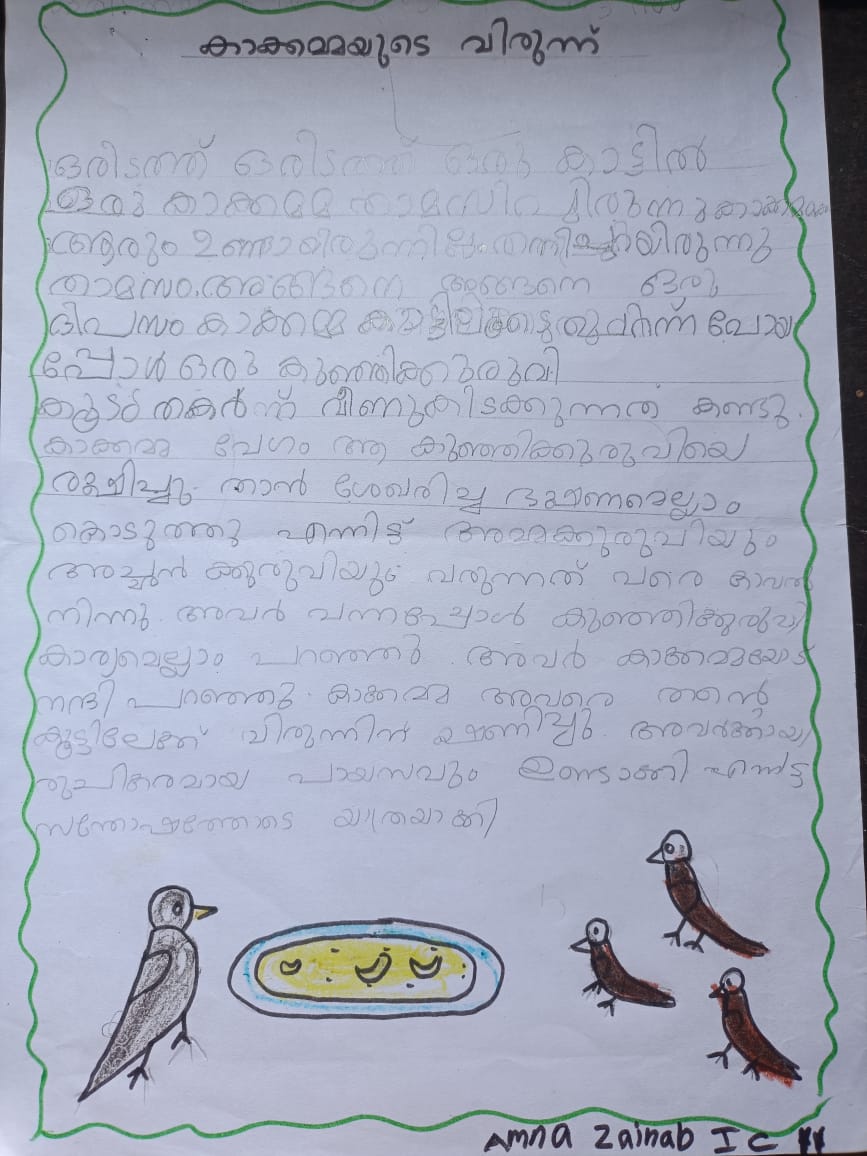 കാക്കമ്മയുടെ വിരുന്ന്
ഒരിടത്ത് ഒരിടത്ത് ഒരു കാട്ടിൽ
ഒരു കാക്കമ്മ താമസിച്ചിരുന്നു കാക്കമ്മക്ക
ആരും ഉണ്ടായിരുന്നില്ല. തനിച്ചായിരുന്നു
താമസം. അങ്ങനെ അങ്ങനെ ഒരു
ദിപസം കാക്കമ്മ പറന്ന് പോയ
പ്പോൾ ഒരു കുഞ്ഞിക്കുരുവി
കൂട് തകർന്ന് വീണുകിടക്കുന്നത് കണ്ടു.
കാക്കമ്മ വേഗം ആ കുഞ്ഞിക്കുരുവിയെ
രക്ഷിച്ചു. താൻ ശേഖരിച്ച ഭക്ഷണമെല്ലാം
കൊടുത്തു എന്നിട്ട് അമ്മക്കുരുവിയും
അച്ചൻ ക്കുരുവിയും വരുന്നത് വരെ കാവൽ
നിന്നു. അവർ വന്നപ്പോൾ കുഞ്ഞിക്കുരുവി
കാര്യമെല്ലാം പറഞ്ഞു. അവർ കാക്കമ്മയോട്
നന്ദി പറഞ്ഞു. കാക്കമ്മ അവരെ തന്റെ
കൂട്ടിലേക്ക് വിരുന്നിന് ക്ഷണിച്ചു. അവർക്കായി
രുചികരമായ പായസവും ഉണ്ടാക്കി എന്നിട്ട്
സന്തോഷത്തോടെ യാത്രയാക്കി
Amna Zainab I C